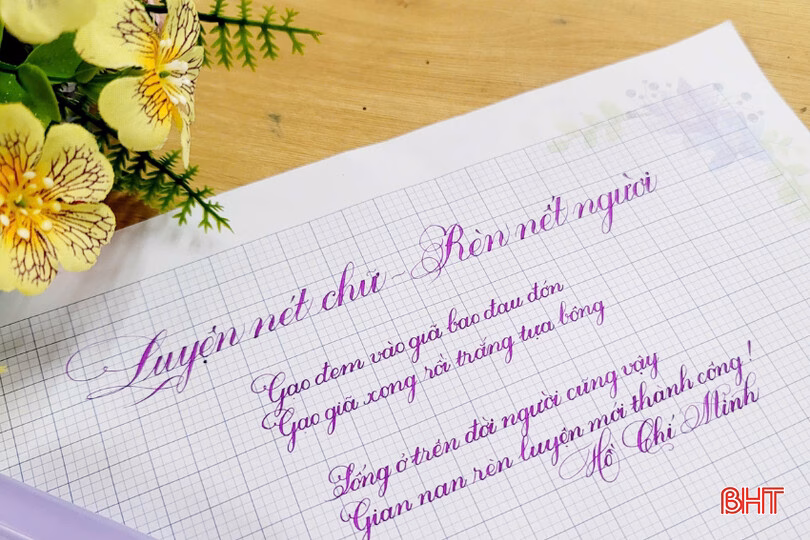 Luyện nét chữ - Rèn nết người
Gạo đem vào giã bao đau đớn
Gạo giã xong rồi trắng tựa bông
Sống ở trên đời người cũng vậy
Gian nan rèn luyện mới thành công!
Hồ Chí Minh
BHT